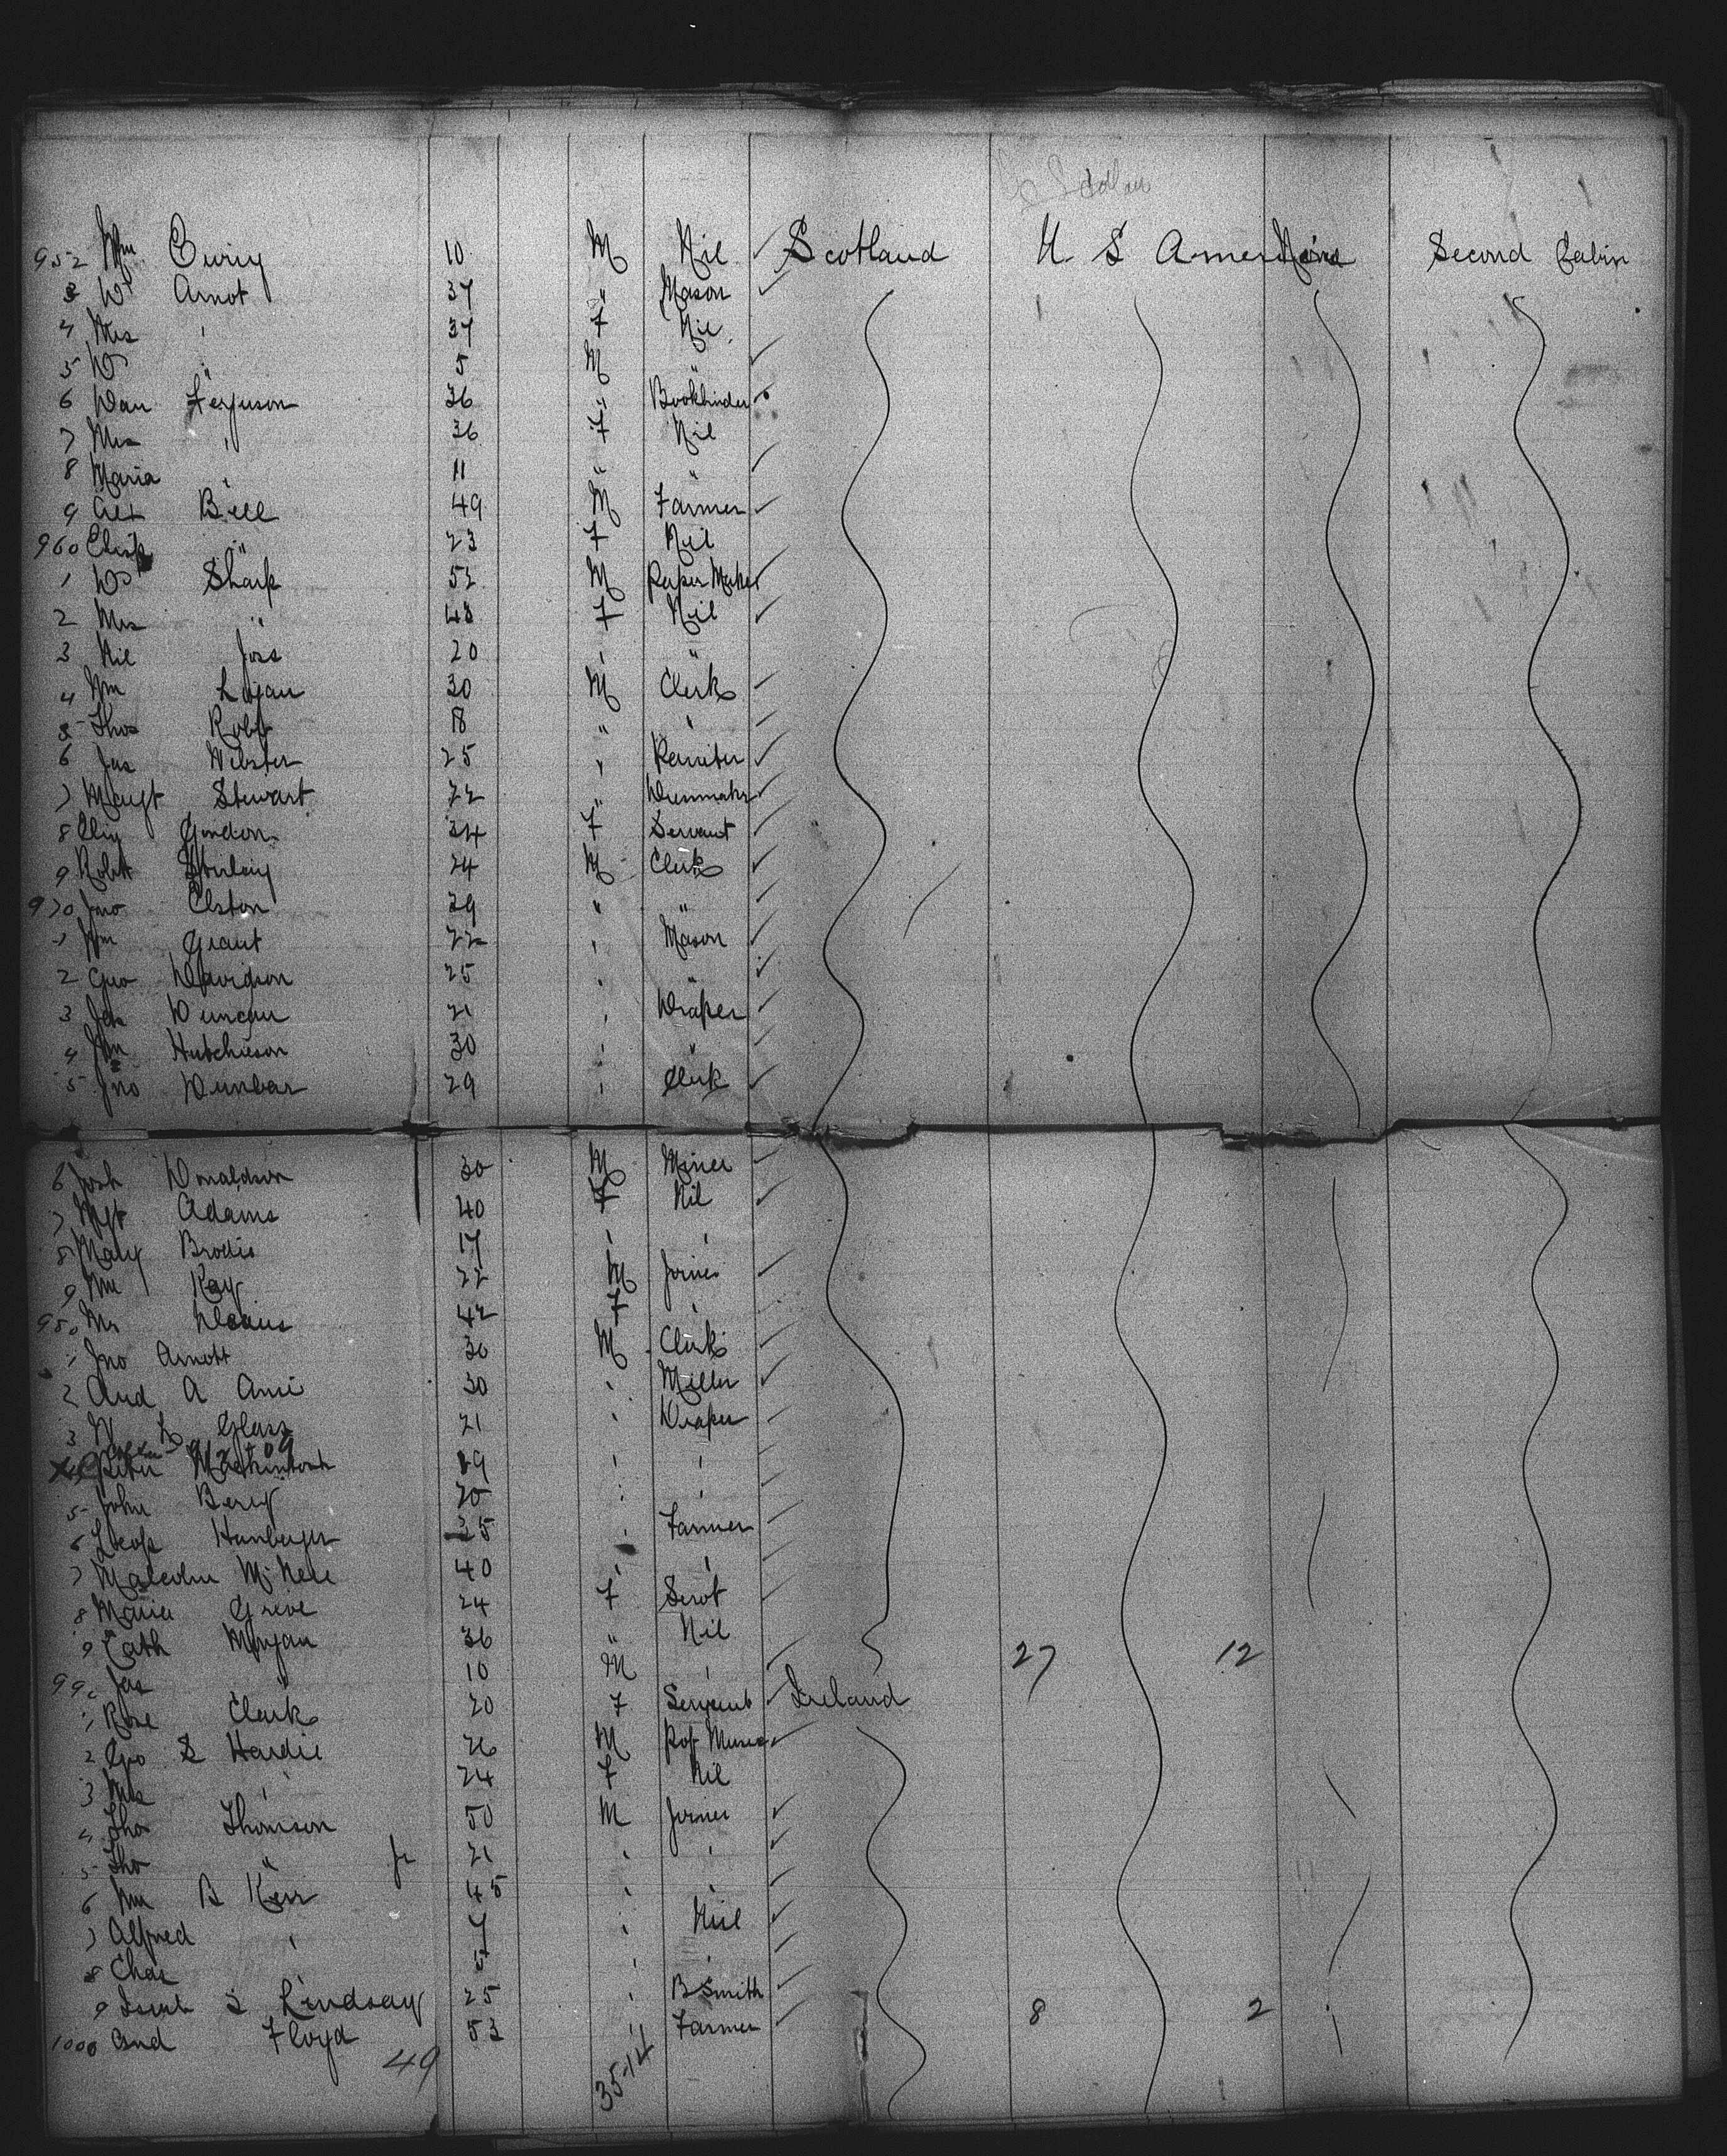 952 Wm Curry 10 M Nil Scotland U. S. America Second Cabin
3 Wm Arnot 37 " Mason
4 Mrs " 37 F Nil
5 Wm " 5 M "
6 Dan Ferguson 36 " Bookbinder
7 Mrs " 36 F Nil
8 Maria " 11 " "
9 Alex Bell 49 M Farmer
960 " 23 F Nil
1 Wm Sharp 52 M Paper Maker
2 Mrs " 48 F Nil
3 Nil Joss 20 " "
4 Wm Logan 30 M Clerk
5 Thos Robb 18 " "
6 Jas Webster 25 "
7 Margt Stewart 22 "
8 Gordon 24 F Servant
9 Robt Stirling 24 M Clerk
970 Jno Elston 29 " "
1 Wm Grant 22 " Mason
2 Geo Davidson 25 " "
3 Jas Duncan 21 " Draper
4 Hutchison 30 " "
5 Jno Dunbar 29 " Clerk
6 Josh Donaldson 30 M Miner
7 Mgt Adams 40 F Nil
8 Mary Brodie 17 " "
9 Wm Kay 22 M Joiner
980 Mrs 42 F "
1 Jno Arnott 30 M Clerk
2 And A 30 " Miller
3 W Glass 21 " Draper
4 Peter Mackintosh 19 " "
5 John Berry 20 " "
6 25 " Farmer
7 Malcolm McNeil 40 " "
8 Maria Grieve 24 F Servt
9 Cath Morgan 36 " Nil
990 Jas " 10 M " 27 12
1 Rose Clark 20 F Servant Ireland
2 Geo S Hardie 26 M Prof Music
3 Mrs " 24 F Nil
4 Tho Thomson 50 M Joiner
5 Tho " Jr 21 " "
6 Wm B Kerr 45 " "
7 Alfred " 7 " Nil
8 Chas " 5 " "
9 S Lindsay 25 " B Smith 8 2
1000 And Floyd 53 " Farmer
49 35-14